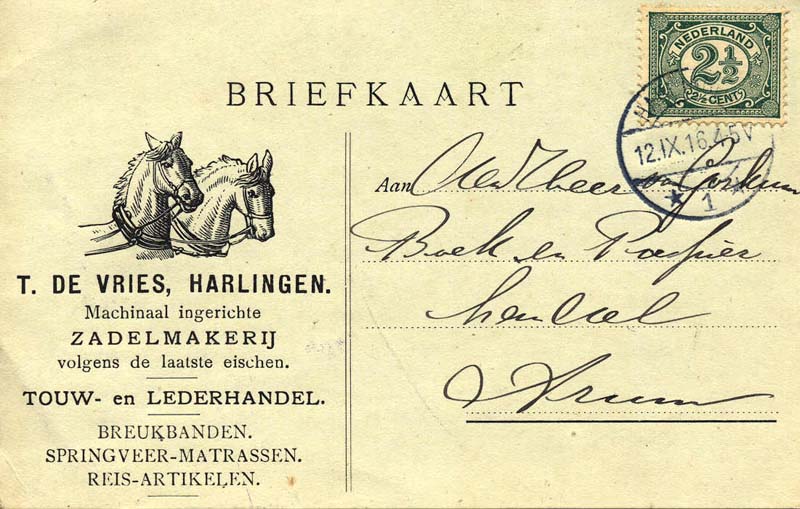 BRIEFKAART
NEDERLAND
2½
2½ CENT
12.IX.16.4-5V
1
T. DE VRIES, HARLINGEN.
Machinaal ingerichte
ZADELMAKERIJ
volgens de laatste eischen.
TOUW- en LEDERHANDEL.
BREUKBANDEN.
SPRINGVEER-MATRASSEN.
REIS-ARTIKELEN.
Aan den Heer van Gorkum
Boek en Papier
handel